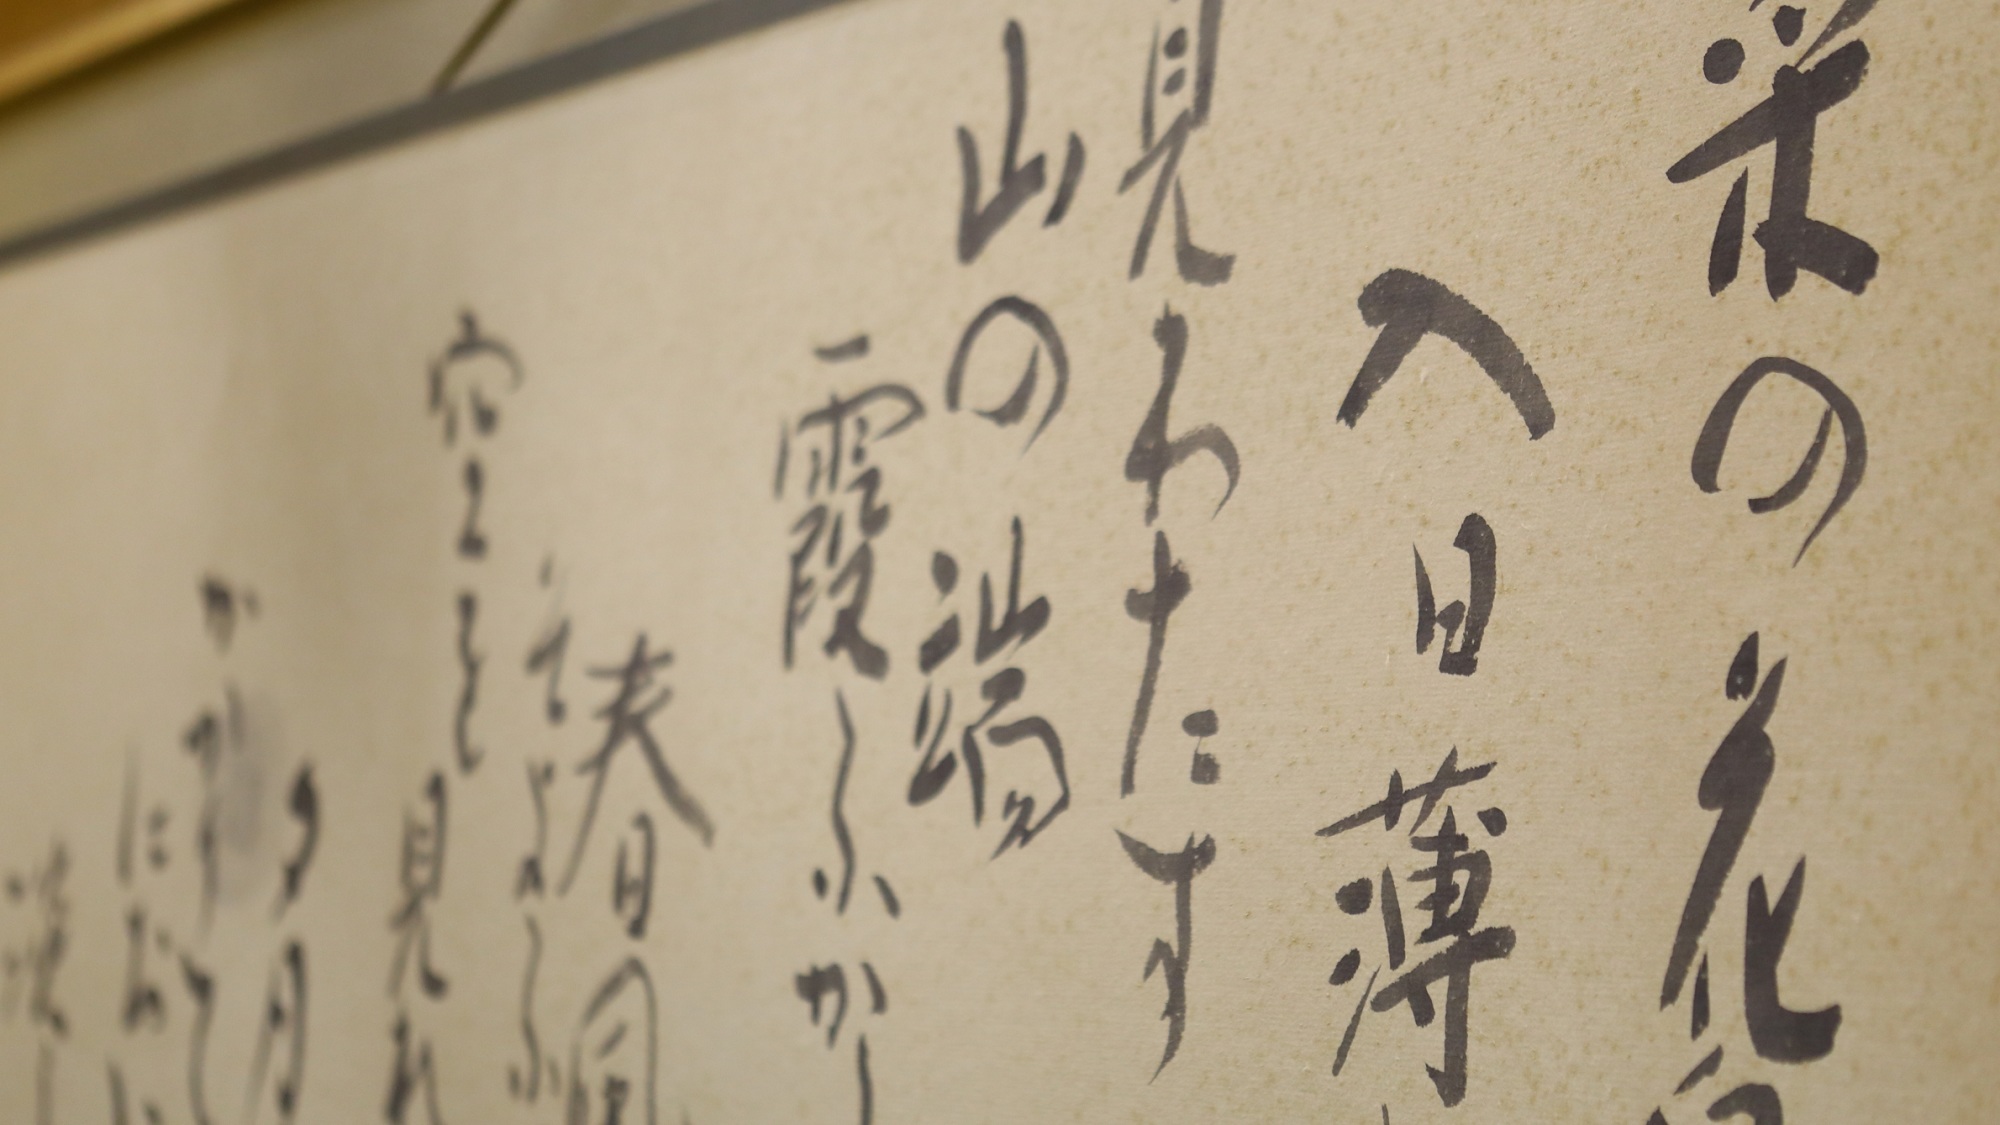 菜の花
入日薄
見わたす
山の端
霞ふかし
春風
そよふ
空を
見れ
夕月
かゝりて
にほひ
淡し